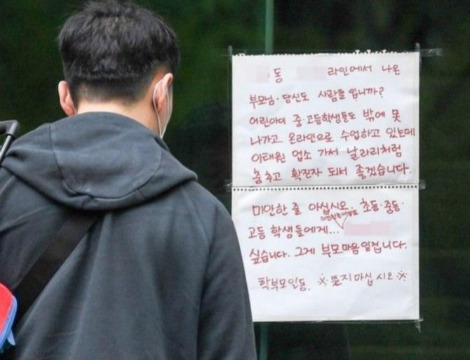 동 라인에서 나온
부모님. 당신도 사람들 입니까?
어린아이 중.고등학생들도 밖에 못
나가고 온라인으로 수업하고 있는데
이태원 업소 가서 날라리처럼
춤추고 확진자 되서 좋겠습니다.
미안한 줄 아십시오. 초등.중등.
고등 학생들에게...
싶습니다. 그게 부모마음 일겁니다.
학부모인동. ※ 뜯지마십시오 ※